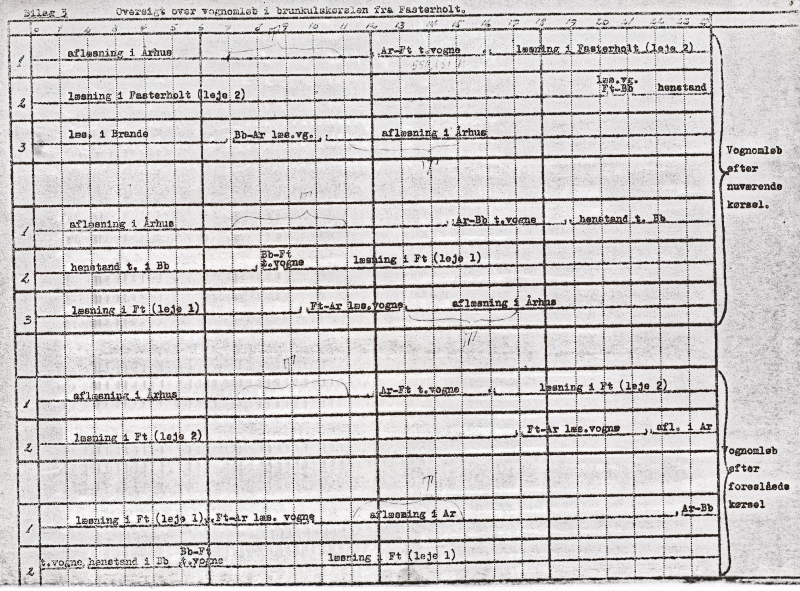 Bilag 3 Oversigt over vognomløb i brunkulskørslen fra Fasterholt.
0 1 2 3 4 5 6 7 8 9 10 11 12 13 14 15 16 17 18 19 20 21 22 23
1 aflæsning i Århus Ar-Ft t.vogne læsning i Fasterholt (leje 2)
2 læsning i Fasterholt (leje 2) læs.vg. Ft-Bb henstand
3 læs. i Brande Bb-Ar læs.vg. aflæsning i Århus
Vognomløb
efter
nuværende
kørsel.
1 aflæsning i Århus Ar-Bb t.vogne henstand t. Bb
2 henstand t. i Bb Bb-Ft t.vogne læsning i Ft (leje 1)
3 læsning i Ft (leje 1) Ft-Ar læs.vogne aflæsning i Århus
1 aflæsning i Århus Ar-Ft t.vogne læsning i Ft (leje 2)
2 læsning i Ft (leje 2) Ft-Ar læs.vogne afl. i Ar
Vognomløb
efter
foreslåede
kørsel
1 læsning i Ft (leje 1) Ft-Ar læs. vogne aflæsning i Ar Ar-Bb
2 t.vogne henstand i Bb Bb-Ft t.vogne læsning i Ft (leje 1)